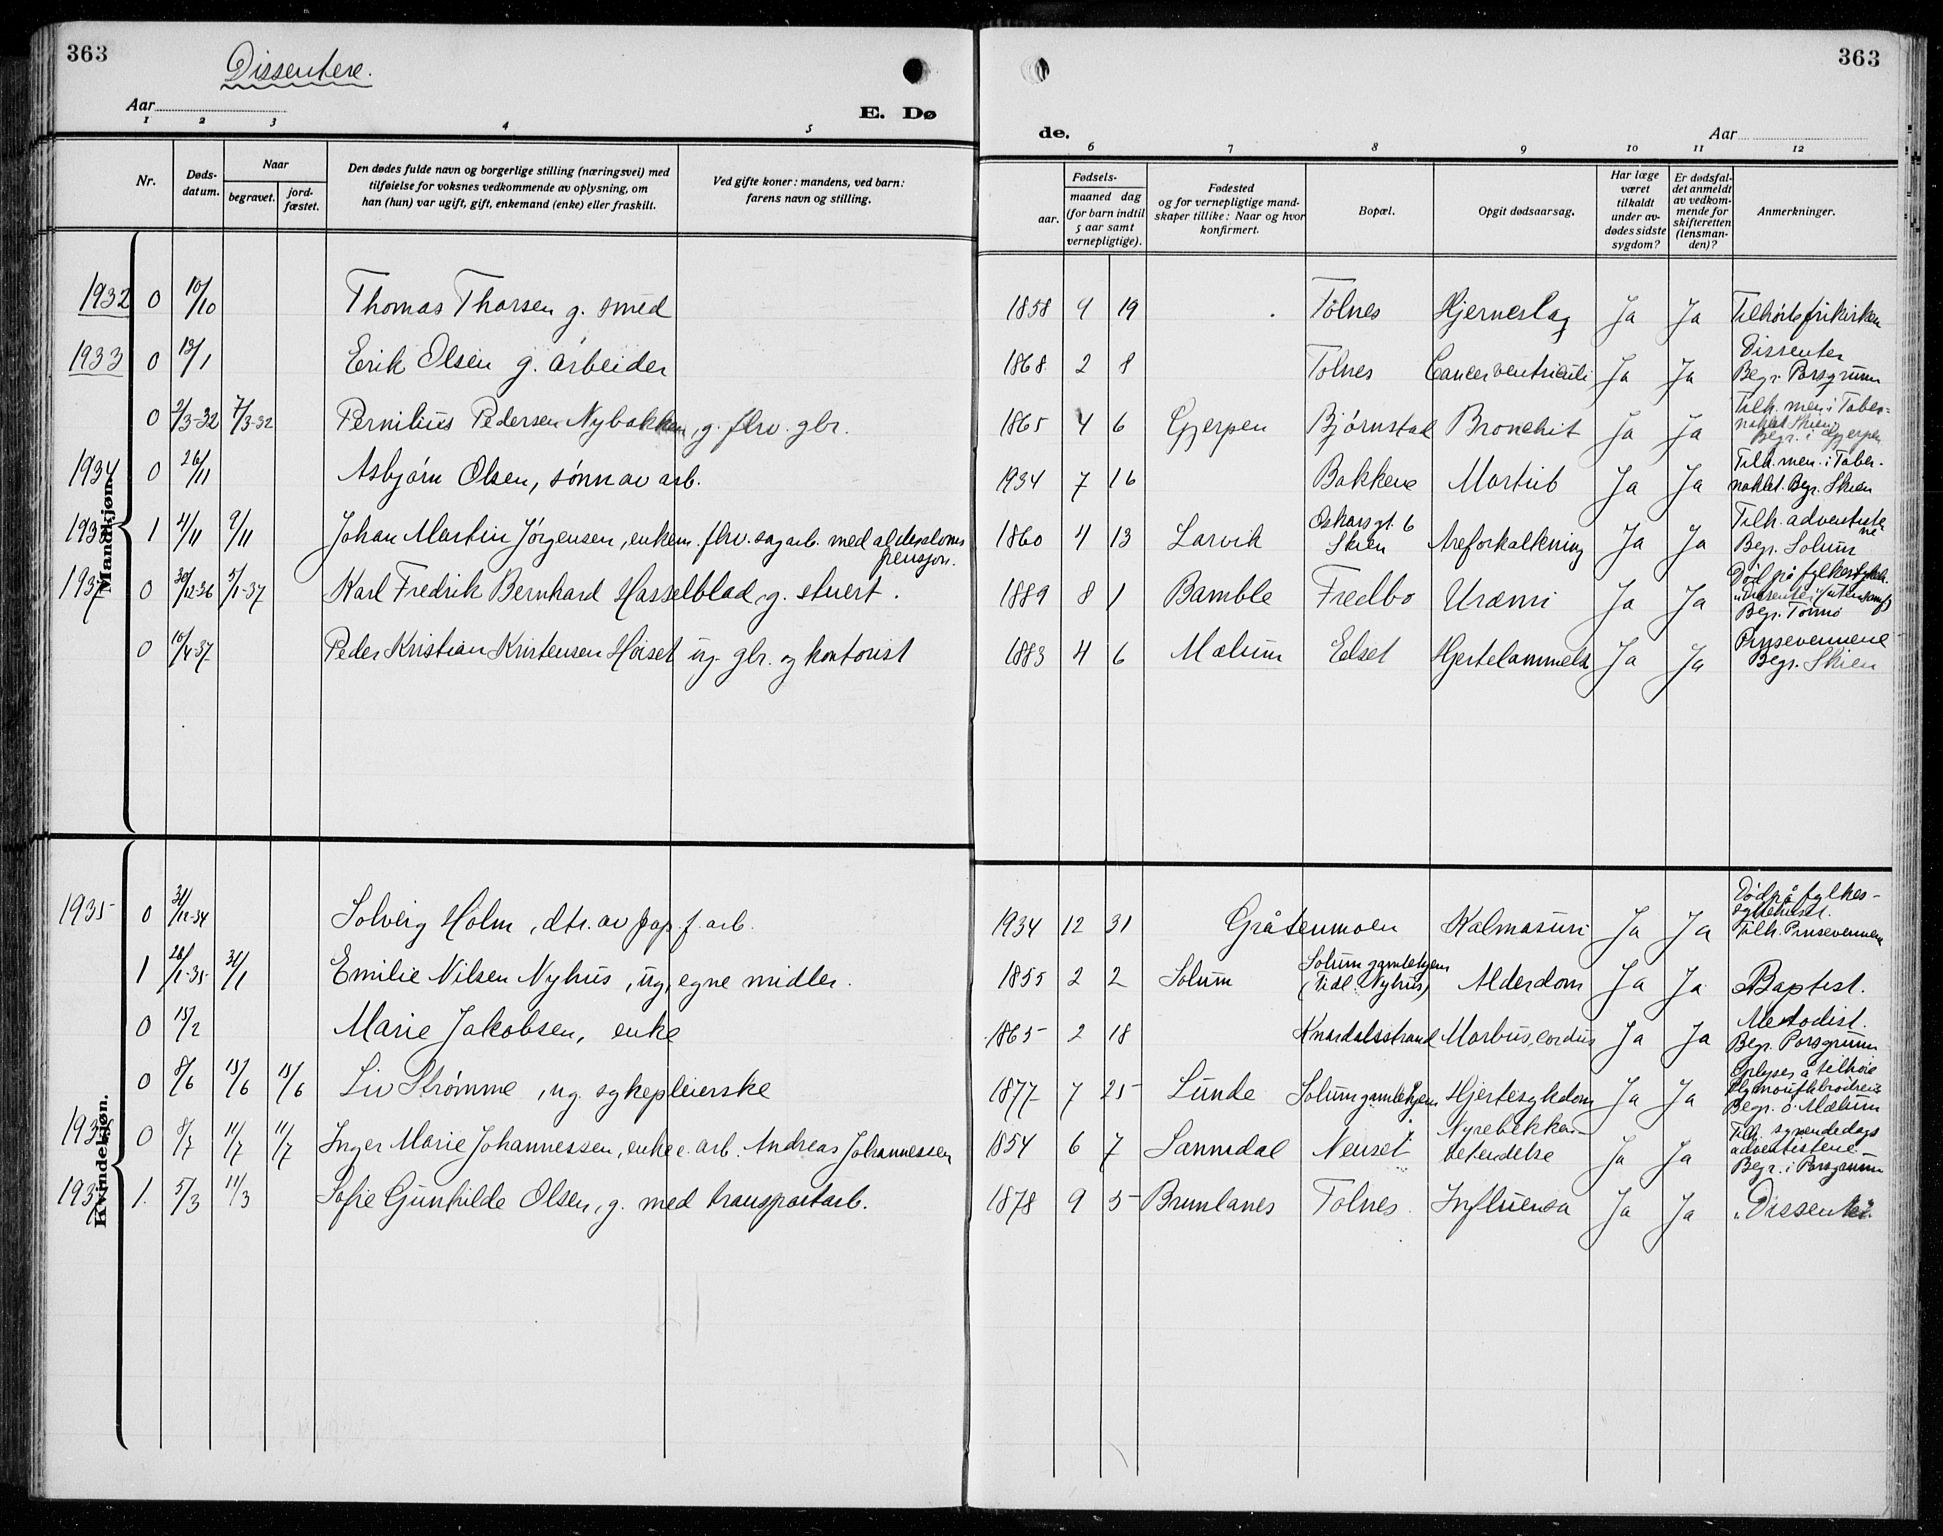 363
Dissentere.
Aar
E. Dø
1 2 3 4 5
Nr.
Døds-datum.
Naar
begravet.
jord-fæstet.
Den dødes fulde navn og borgerlige stilling (næringsvei) med
tilføielse for voksnes vedkommende av oplysning, om
han (hun) var ugift, gift, enkemand (enke) eller fraskilt.
Ved gifte koner: mandens, ved barn:
farens navn og stilling.
Mandkjøn.
1932 0 10/10 Thomas Thorsen g. smed
1933 0 13/1 Erik Olsen g. arbeider
0 2/3-32 7/3-32 Pernilius Pedersen Nybakken, g. fhv. gbr.
1934 0 26/11 Asbjørn Olsen, sønn av arb.
1 4/11 9/11 Johan Martin Jørgensen, enkem. fhv. sagarb. med alderdoms
pensjon.
1937 0 30/12-36 5/1-37 Karl Fredrik Bernhard Hasselblad, g. stuert.
0 10/4-37 Peder Kristian Kristensen Høiset ug. gbr. og kontorist
Kvindekjøn.
1935 0 31/12-34 Solveig Holm, dtr. av pap.f. arb.
1 28/1-35 31/1 Emilie Nilsen Nyhus, ug, egne midler.
0 15/2 Marie Jakobsen, enke
0 8/6 13/6 13/6 Liv Strømme, ug. sykepleierske
0 8/7 11/7 11/7 Inger Marie Johannessen, enke e. arb. Andreas Johannessen
1937 1. 5/3 11/3 Sofie Gunhilde Olsen, g. med transportarb.
363
de.
Aar
6 7 8 9 10 11 12
Fødsels-
aar.
maaned dag
(for barn indtil
5 aar samt
vernepligtige).
Fødested
og for vernepligtige mand-
skaper tillike: Naar og hvor
konfirmert.
Bopæl.
Opgit dødsaarsag.
Har læge
været
tilkaldt
under av-
dødes sidste
sygdom?
Er dødsfal-
det anmeldt
av vedkom-
mende for
skifteretten
(lensman-
den)?
Anmerkninger.
1858 4 19 Tolnes Hjerneslag Ja Ja Tilhørte frikirken
1868 2 8 Tolnes Cancer ventriculi Ja Ja Dissenter
Begr. Porsgrunn
1865 4 6 Gjerpen Bjørnstad Bronchit Ja Ja Tilh. men. i Taber-
naklet Skien
Begr. i Gjerpen
1934 7 16 Bakkene Ja Ja Tilh. men. i Taber-
naklet. Begr. Skien
1860 4 13 Larvik Oskarsgt. 6
Skien Areforkalkning Ja Ja Tilh. adventiste
ne
Begr. Solum
1889 8 1 Bamble Fredbo Uræmi Ja Ja Død på fylkessykeh.
Begr.
1883 4 6 Mælum Eelset Hjertelammelse Ja Ja Pinsevennene
Begr. Skien
1934 12 31 Gråtenmoen Ja Ja Død på fylkes-
sykehuset.
Tilh. Pinsevennene
1855 2 2 Solum Solum gamlehjem
(Tidl. Nyhus) Alderdom Ja Ja Baptist.
1865 2 18 Knardalsstrand Morbus cordis Ja Ja Metodist.
Begr. Porsgrunn
1877 7 25 Lunde Solum gamlehjem Hjertesykdom Ja Ja Oplyses å tilhøre
Plymouthbrødrene
Begr. i Mælum
1854 6 7 Sannidal Nenset Nyrebekken-
betendelse Ja Ja Tilh. syvendedags
adventistene -
Begr. i Porsgrunn
1878 9 5 Brunlanes Tolnes Influensa Ja Ja "Dissenter".